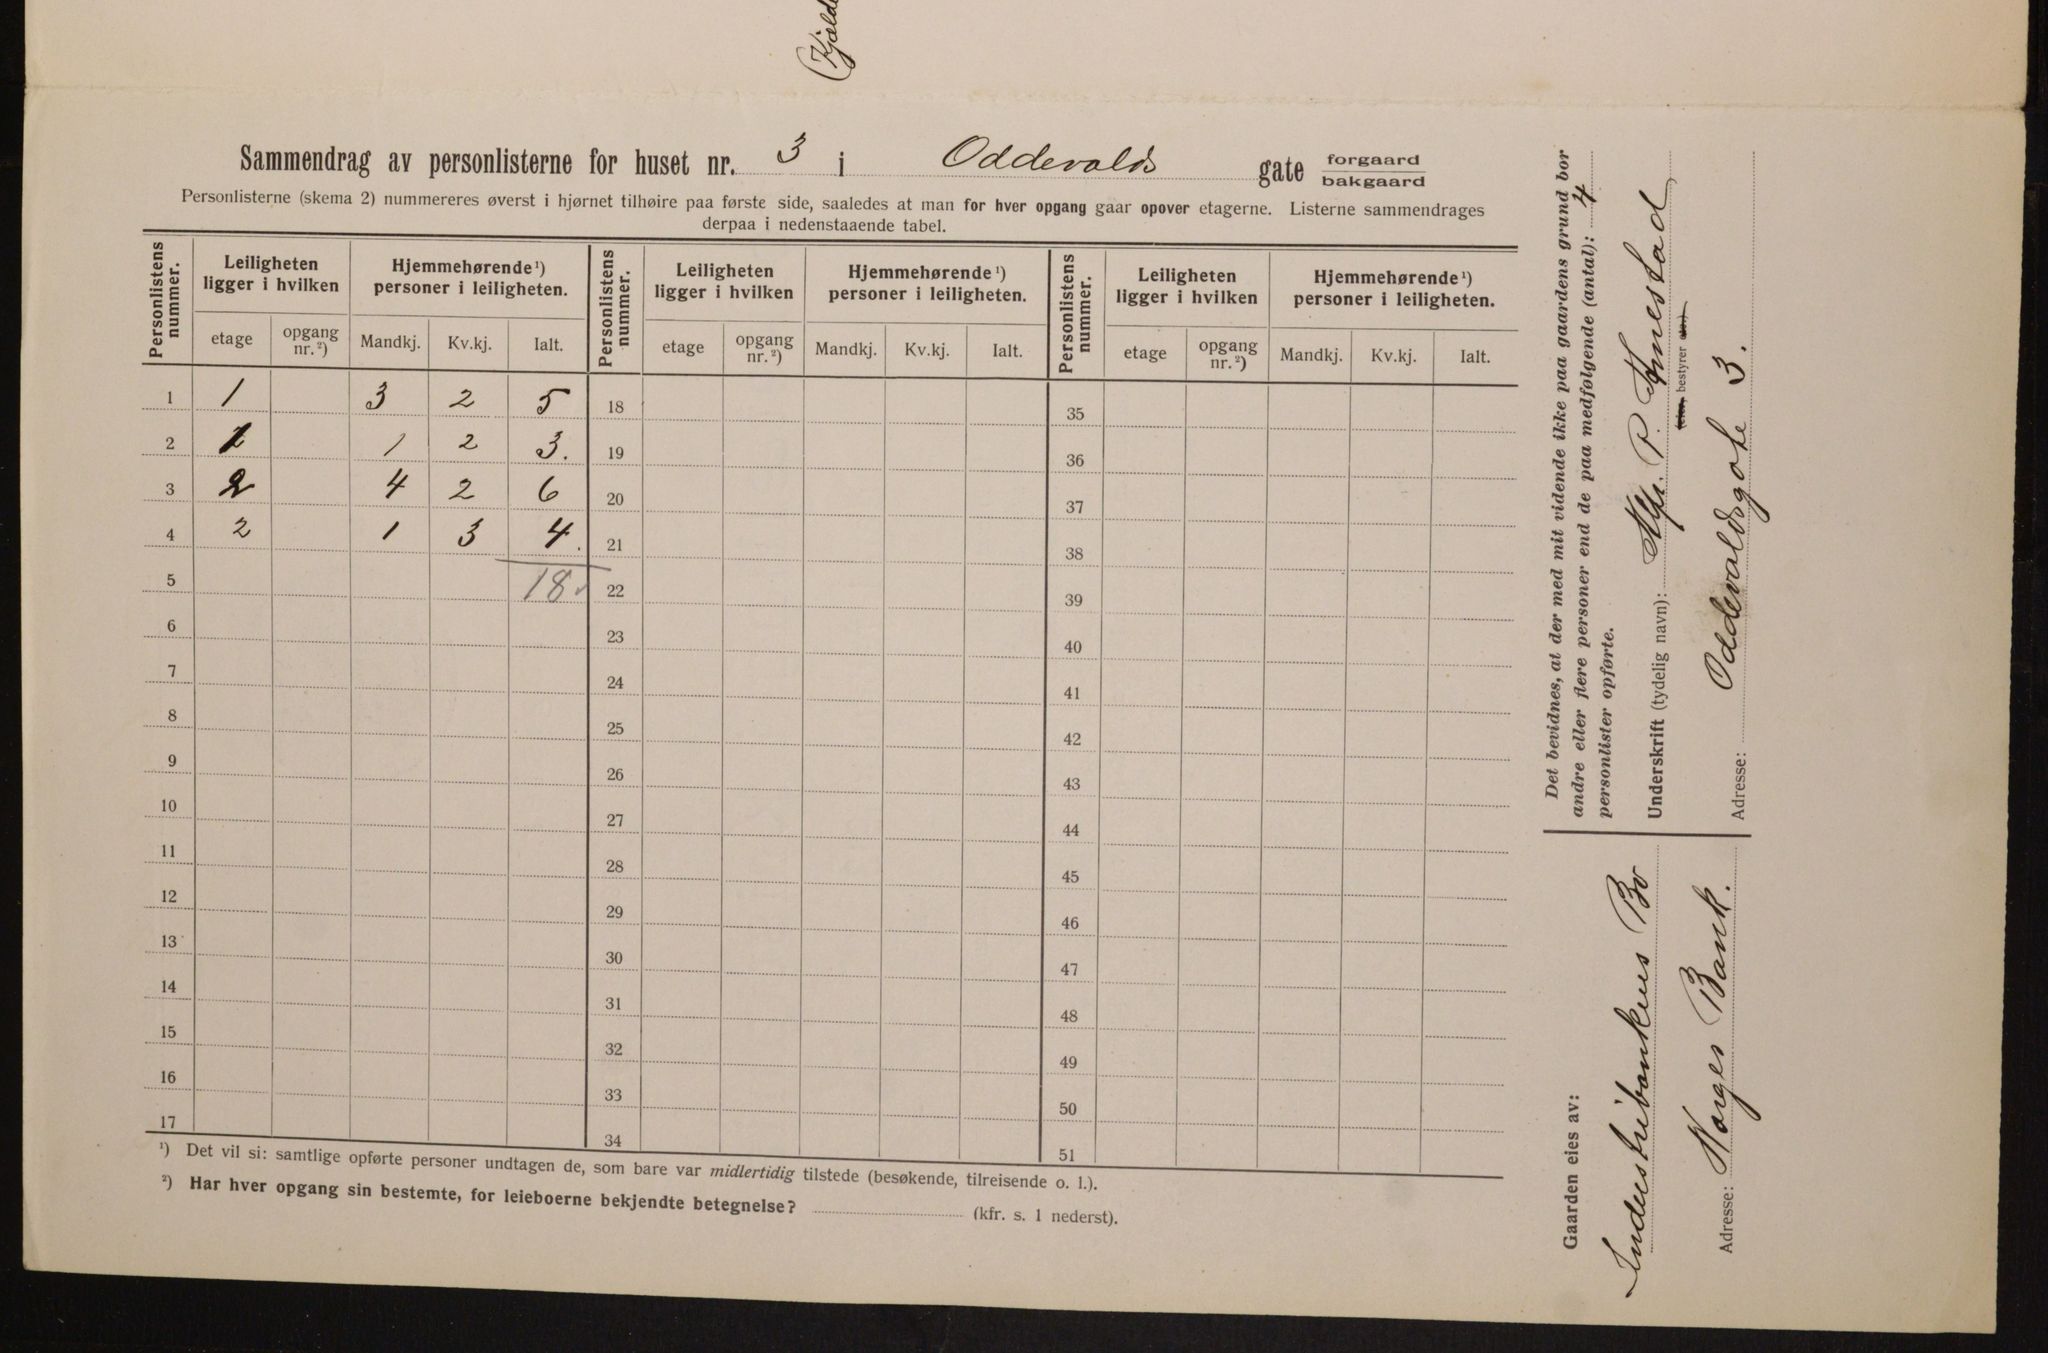 (Kjæld
Sammendrag av personlisterne for huset nr. 3 i Oddevalds gate forgaard
bakgaard
Personlisterne (skema 2) nummereres øverst i hjørnet tilhøire paa første side, saaledes at man for hver opgang gaar opover etagerne. Listerne sammendrages
derpaa i nedenstaaende tabel.
Personlistens nummer. Leiligheten ligger i hvilken Hjemmehørende ¹) personer i leiligheten. Personlistens nummer. Leiligheten ligger i hvilken Hjemmehørende ¹) personer i leiligheten. Personlistens nummer. Leiligheten ligger i hvilken Hjemmehørende ¹) personer i leiligheten.
etage opgang nr. ²) Mandkj. Kv.kj. Ialt. etage opgang nr. ²) Mandkj. Kv.kj. Ialt. etage opgang nr. ²) Mandkj. Kv.kj. Ialt.
1 1 3 2 5 18 35
2 1 1 2 3. 19 36
3 2 4 2 6 20 37
4 2 1 3 4. 21 38
5 18 22 39
6 23 40
7 24 41
8 25 42
9 26 43
10 27 44
11 28 45
12 29 46
13 30 47
14 31 48
15 32 49
16 33 50
17 34 51
¹) Det vil si: samtlige opførte personer undtagen de, som bare var midlertidig tilstede (besøkende, tilreisende o. l.).
²) Har hver opgang sin bestemte, for leieboerne bekjendte betegnelse? (kfr. s. 1 nederst).
Det bevidnes, at der med mit vidende ikke paa gaardens grund bor
andre eller flere personer end de paa medfølgende (antal): 4
personlister opførte.
Underskrift (tydelig navn):
bestyrer
Adresse: Oddevaldsgate 3.
Gaarden eies av:
Industribankens Bo
Adresse: Norges Bank.